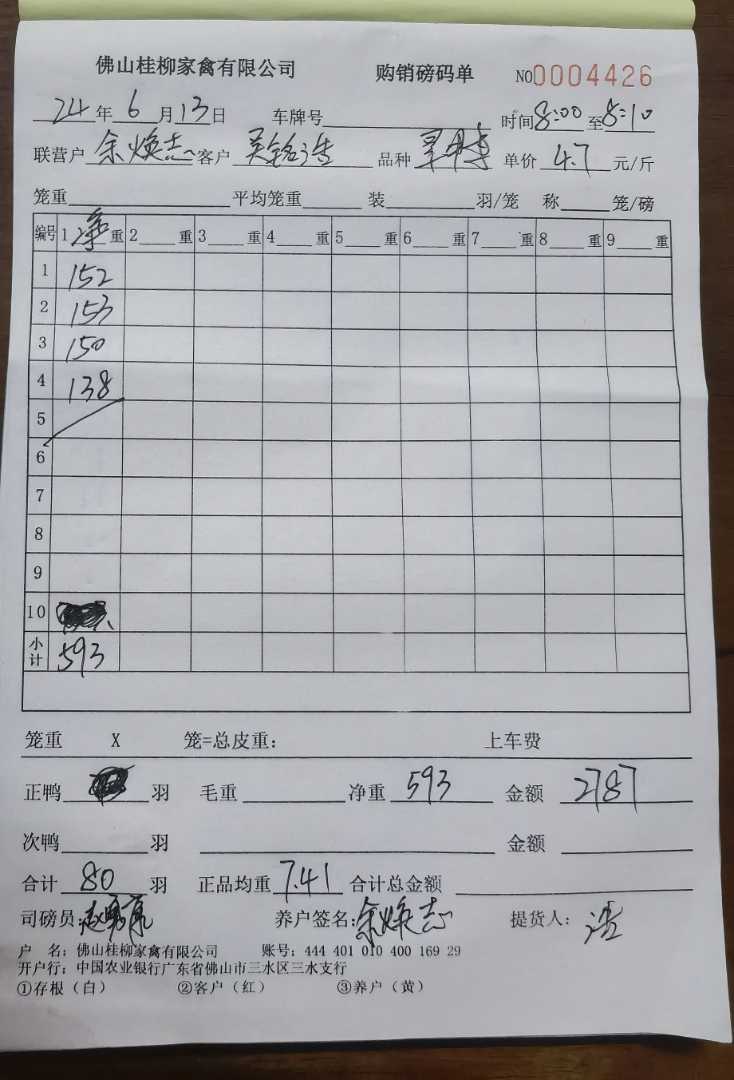 佛山桂柳家禽有限公司 购销磅码单 NO0004426
24年6月13日 车牌号 时间8:00至8:10
联营户 余焕志 客户 吴铭浩 品种 单价 4.7 元/斤
笼重 平均笼重 装 羽/笼 称 笼/磅
编号 1 净 重 2 重 3 重 4 重 5 重 6 重 7 重 8 重 9 重
1 152
2 153
3 150
4 138
5
6
7
8
9
10
小计 593
笼重 X 笼=总皮重: 上车费
正鸭 羽 毛重 净重 593 金额 2787
次鸭 羽 金额
合计 80 羽 正品均重 7.41 合计总金额
司磅员: 养户签名: 余焕志 提货人: 浩
户 名: 佛山桂柳家禽有限公司 账号: 444 401 010 400 169 29
开户行: 中国农业银行广东省佛山市三水区三水支行
①存根(白) ②客户(红) ③养户(黄)